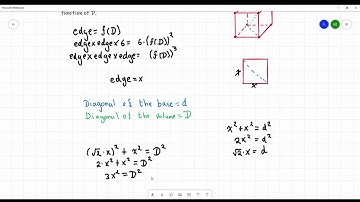 function of D.
edge = f(D)
edge x edge x 6 = 6·(f(D))²
edge x edge x edge = (f(D))³
edge = x
Diagonal of the base = d
Diagonal of the volume = D
(√2·x)² + x² = D²
2·x² + x² = D²
3x² = D²
x
x
x² + x² = d²
2x² = d²
√2·x = d